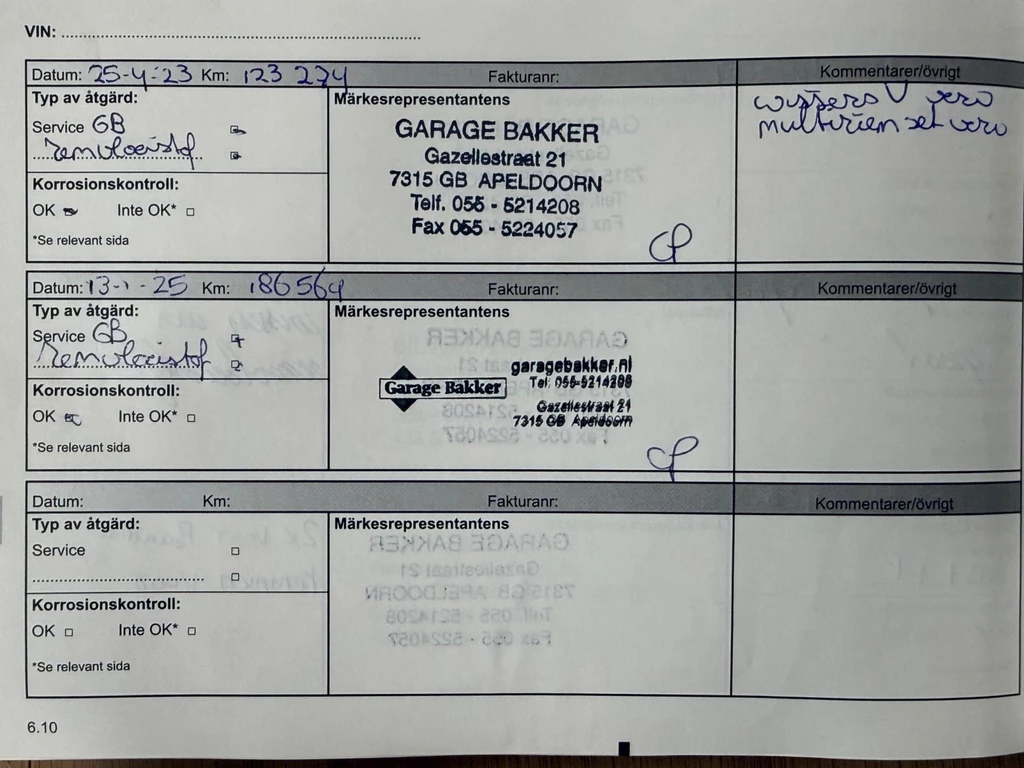 VIN: ..........
Datum: 25-4-23 Km: 123 274 Fakturanr: Kommentarer/övrigt
Typ av åtgärd: Märkesrepresentantens
wissers V verv
Service GB
multiriem set verv
remvloeistof
GARAGE BAKKER
Gazellestraat 21
7315 GB APELDOORN
Telf. 055 - 5214208
Fax 055 - 5224057
Korrosionskontroll:
OK Inte OK*
*Se relevant sida
CP
Datum: 13-1-25 Km: 186564 Fakturanr: Kommentarer/övrigt
Typ av åtgärd: Märkesrepresentantens
Service GB
remvloeistof
Garage Bakker
garagebakker.nl
Tel: 055-5214208
Gazellestraat 21
7315 GB Apeldoorn
Korrosionskontroll:
OK Inte OK*
*Se relevant sida
CP
Datum: Km: Fakturanr: Kommentarer/övrigt
Typ av åtgärd: Märkesrepresentantens
Service
Korrosionskontroll:
OK Inte OK*
*Se relevant sida
6.10